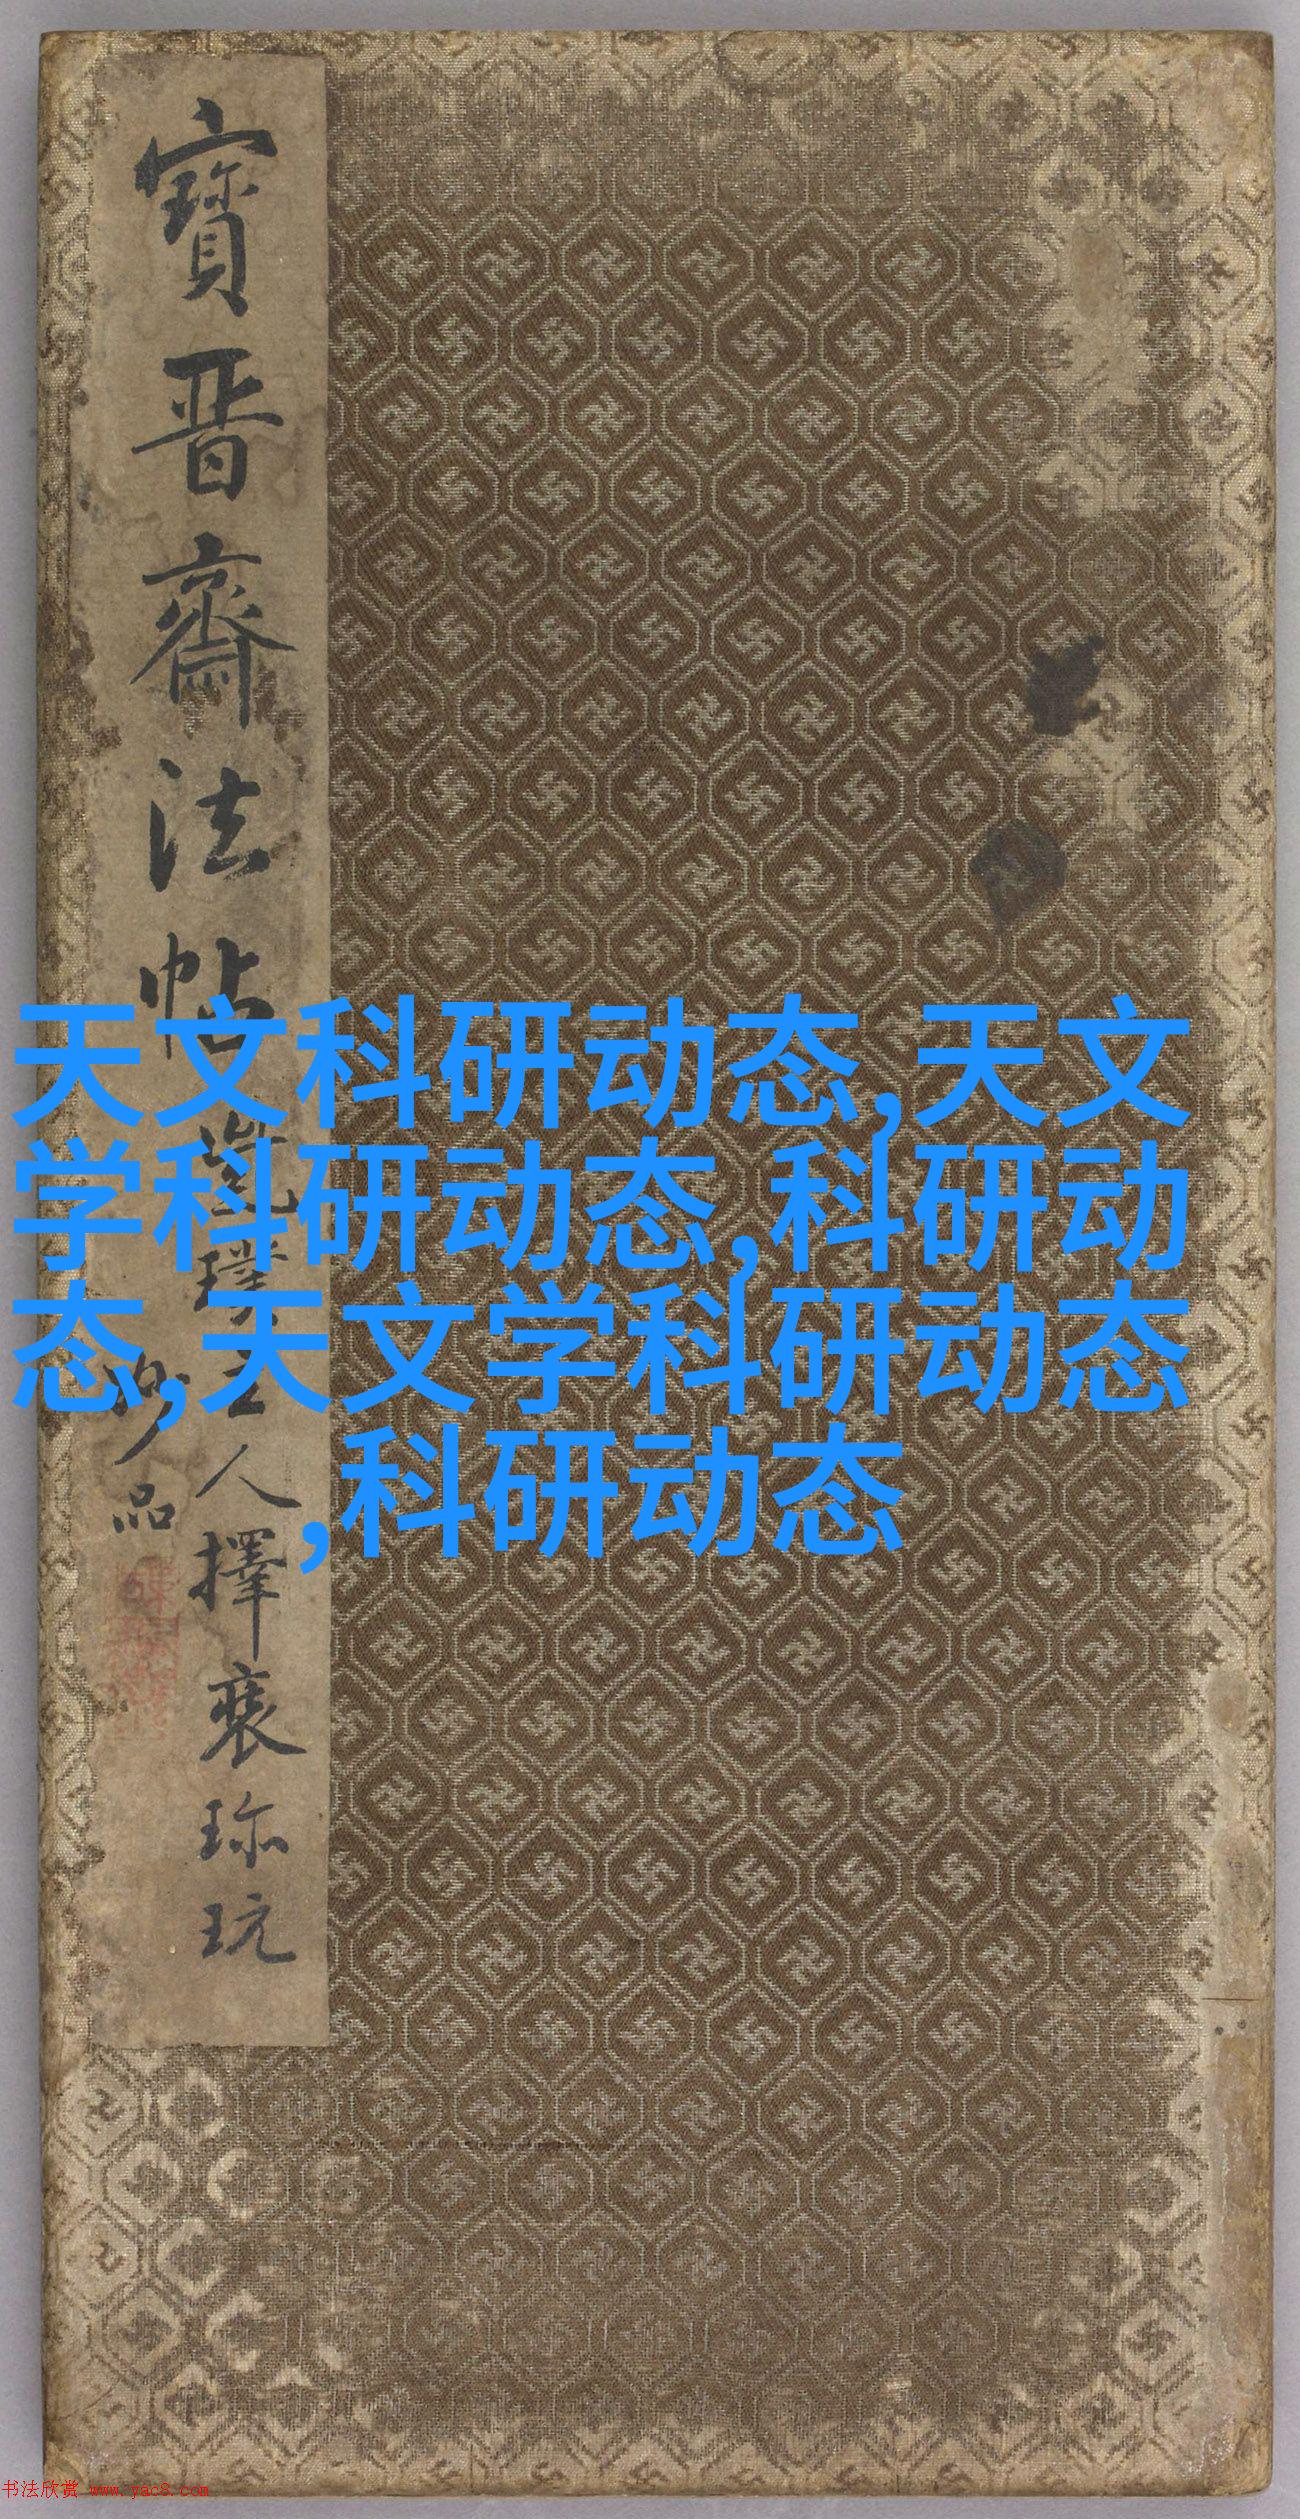 寶晋齋法帖
人擇裘珎玩
品
天文科研动态,天文
学科研动态,科研动
态,天文学科研动态
,科研动态
书法欣赏 www.yac8.com